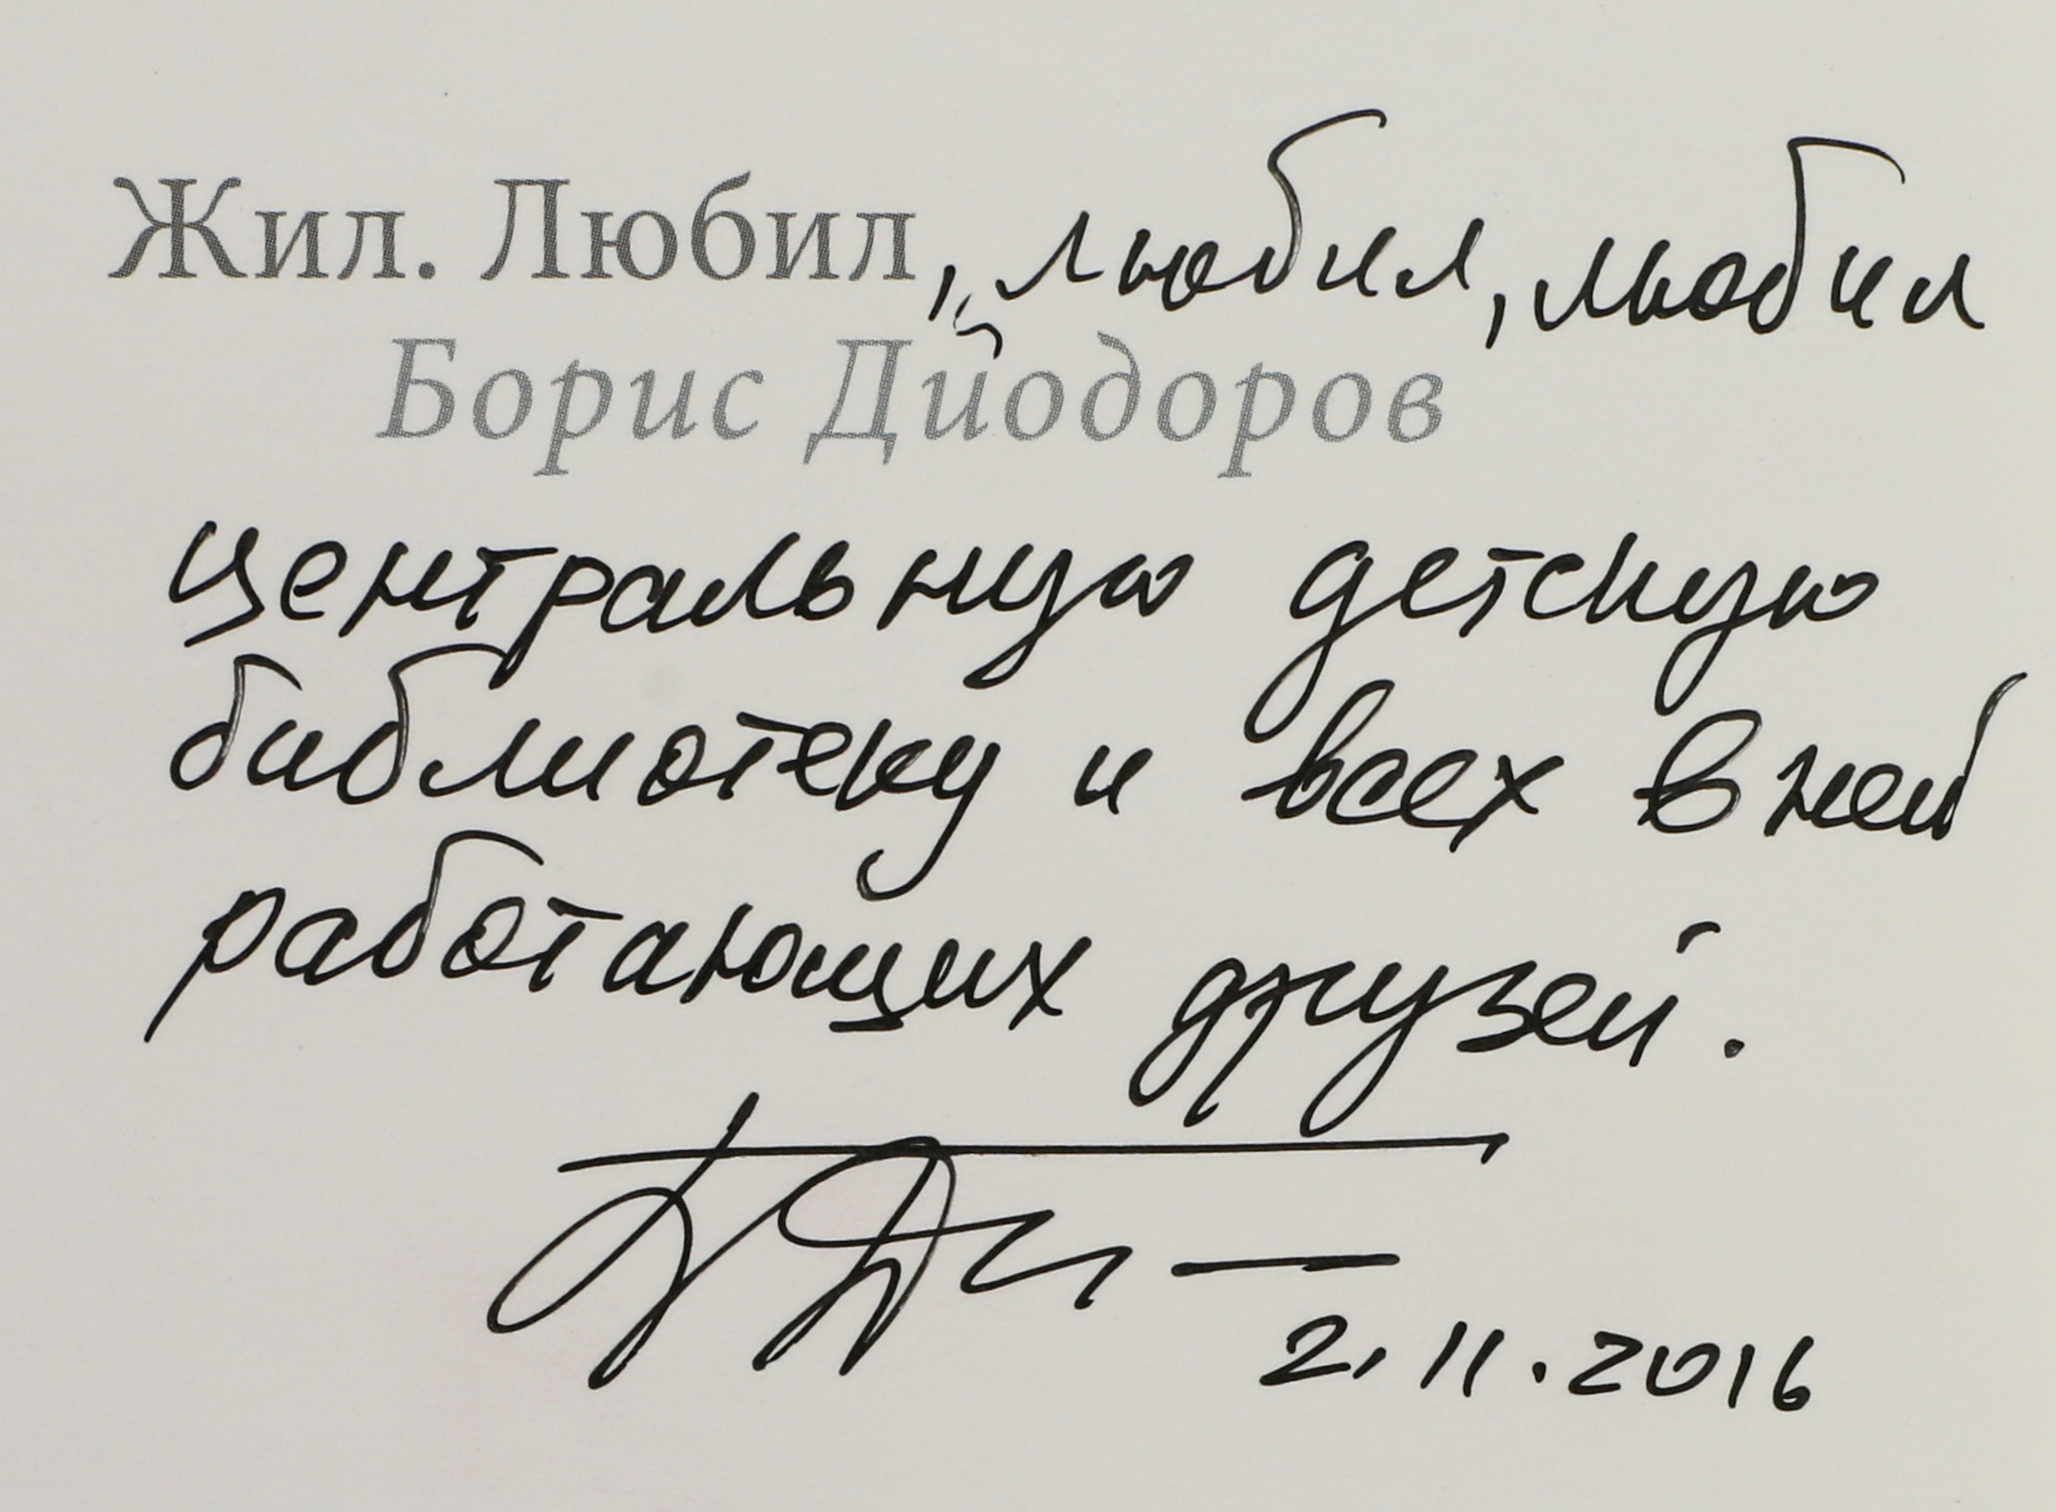 Жил. Любил, любил, любил
Борис Диодоров
центральную детскую
библиотеку и всех в ней
работающих друзей.
2.11.2016